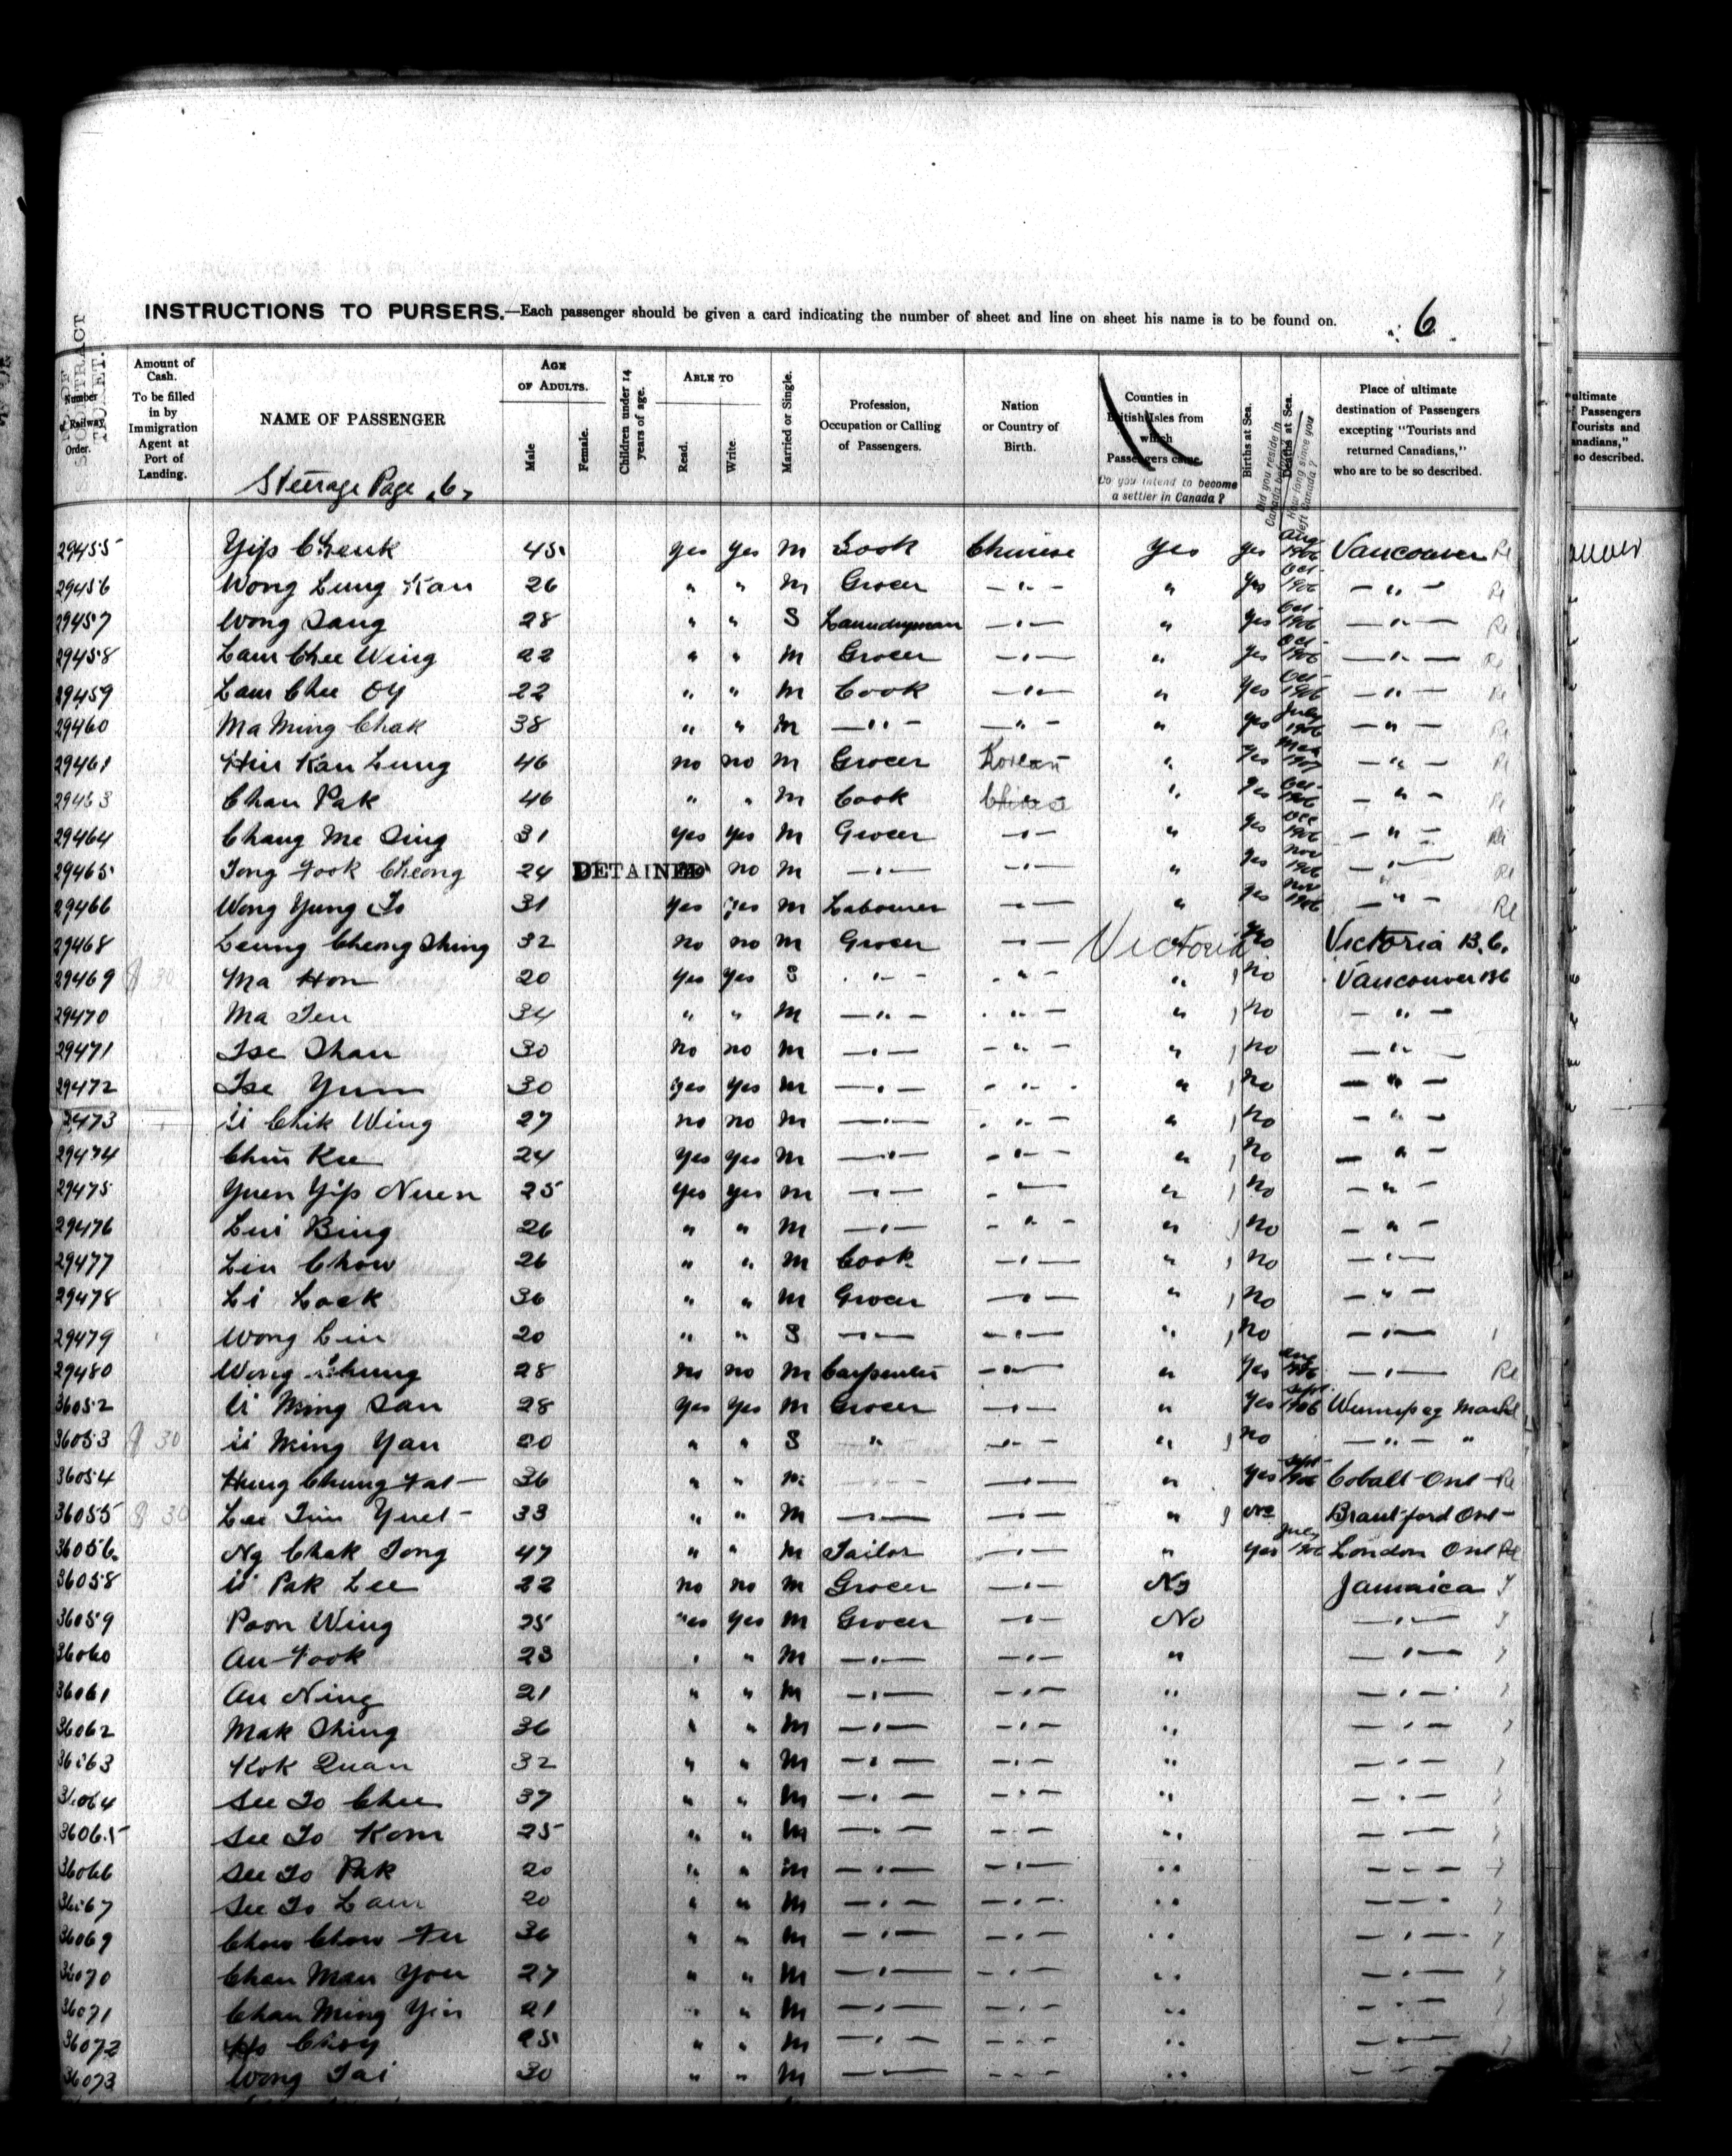 INSTRUCTIONS TO PURSERS.—Each passenger should be given a card indicating the number of sheet and line on sheet his name is to be found on. 6
Number of Railway Order.
CONTRACT TICKET.
Amount of Cash. To be filled in by Immigration Agent at Port of Landing.
NAME OF PASSENGER
Steerage Page "6"
AGE OF ADULTS. Male Female.
Children under 14 years of age.
ABLE TO Read. Write.
Married or Single.
Profession, Occupation or Calling of Passengers.
Nation or Country of Birth.
Counties in British Isles from which Passengers came.
Do you intend to become a settler in Canada?
Births at Sea.
Deaths at Sea.
Did you reside in Canada before
How long since you left Canada?
Place of ultimate destination of Passengers excepting "Tourists and returned Canadians," who are to be so described.
29455 Yip Cheuk 45 yes yes M Cook Chinese Yes yes Aug 1906 Vancouver Re
29456 Wong Lung Kau 26 " " M Grocer — " — " yes Oct 1906 — " — Re
29457 Wong Sang 28 " " S Laundryman — " — " yes Oct 1906 — " — Re
29458 Lam Chee Wing 22 " " M Grocer — " — " yes Oct 1906 — " — Re
29459 Lam Chee Oy 22 " " M Cook — " — " Yes Oct 1906 — " — Re
29460 Ma Ming Chak 38 " " M — " — — " — " yes July 1906 — " — Re
29461 Hiu Kau Lung 46 no no M Grocer Korean " yes 1907 — " — Re
29463 Chan Pak 46 " " M Cook Chinese " yes Oct 1906 — " — Re
29464 Chang Me Sing 31 yes yes M Grocer — " — " yes Oct 1906 — " — Re
29465 Tong Fook Cheong 24 DETAINED no M — " — — " — " yes Nov 1906 — " — Re
29466 Wong Yung To 31 yes yes M Labourer — " — " yes Nov 1906 — " — Re
29468 Leung Cheong Shing 32 no no M Grocer — " — Victoria no Victoria B.C.
29469 $ 30 Ma Hon 20 Yes Yes S — " — — " — " no Vancouver BC
29470 Ma Ten 34 " " M — " — — " — " no — " —
29471 Tse Shau 30 no no M — " — — " — " no — " —
29472 Tse Yum 30 yes yes M — " — — " — " no — " —
29473 Li Chik Wing 27 no no M — " — — " — " no — " —
29474 Chiu Kee 24 yes yes M — " — — " — " no — " —
29475 Yuen Yip Nuen 25 yes yes M — " — — " — " no — " —
29476 Lui Bing 26 " " M — " — — " — " no — " —
29477 Liu Chow 26 " " M Cook — " — " no — " —
29478 Li Lock 36 " " M Grocer — " — " no — " —
29479 Wong Liu 20 " " S — " — — " — " no — " —
29480 Wong Chung 28 no no M Carpenter — " — " yes Aug 1906 — " — Re
36052 Li Ming San 28 yes yes M Grocer — " — " yes Sept 1906 Winnipeg Man Re
36053 $ 30 Li Ming Yau 20 " " S " — " — " no — " — "
36054 Hung Chung Fat 36 " " M — " — " yes Sept 1906 Cobalt Ont Re
36055 $ 30 Lee Tim Yuet 33 " " M — " — — " — " no Brantford Ont
36056 Ng Chak Tong 47 " " M Tailor — " — " yes July 1906 London Ont Re
36058 Li Pak Lee 22 no no M Grocer — " — No Jamaica T
36059 Poon Wing 25 yes yes M Grocer — " — No — " —
36060 Au Fook 23 " " M — " — — " — " — " —
36061 Au Ning 21 " " M — " — — " — " — " —
36062 Mak Shing 36 " " M — " — — " — " — " —
36063 Kok Quan 32 " " M — " — — " — " — " —
36064 See To Chee 37 " " M — " — — " — " — " —
36065 See To Kom 25 " " M — " — — " — " — " —
36066 See To Pak 20 " " M — " — — " — " — " —
36067 See To Lam 20 " " M — " — — " — " — " —
36069 Chow Chow Fu 36 " " M — " — — " — " — " —
36070 Chan Man You 27 " " M — " — — " — " — " —
36071 Chan Ming Yin 21 " " M — " — — " — " — " —
36072 Ho Choy 25 " " M — " — — " — " — " —
36073 Wong Tai 30 " " M — " — — " — " — " —